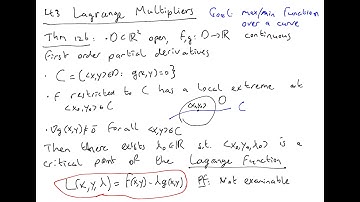 4.3 Lagrange Multipliers Goal: max/min function
over a curve
Thm 126: • D⊂ℝ² open, f,g: D→ℝ continuous
first order partial derivatives
• C = {<x,y>∈D: g(x,y)=0}
• f restricted to C has a local extreme at
<x₀,y₀>∈C <x₀,y₀> D C
• ∇g(x,y)≠0 for all <x,y>∈C
Then there exists λ₀∈ℝ s.t. <x₀,y₀,λ₀> is a
critical part of the Lagange Function
L(x,y,λ) = f(x,y) - λg(x,y) Pf: Not examinable